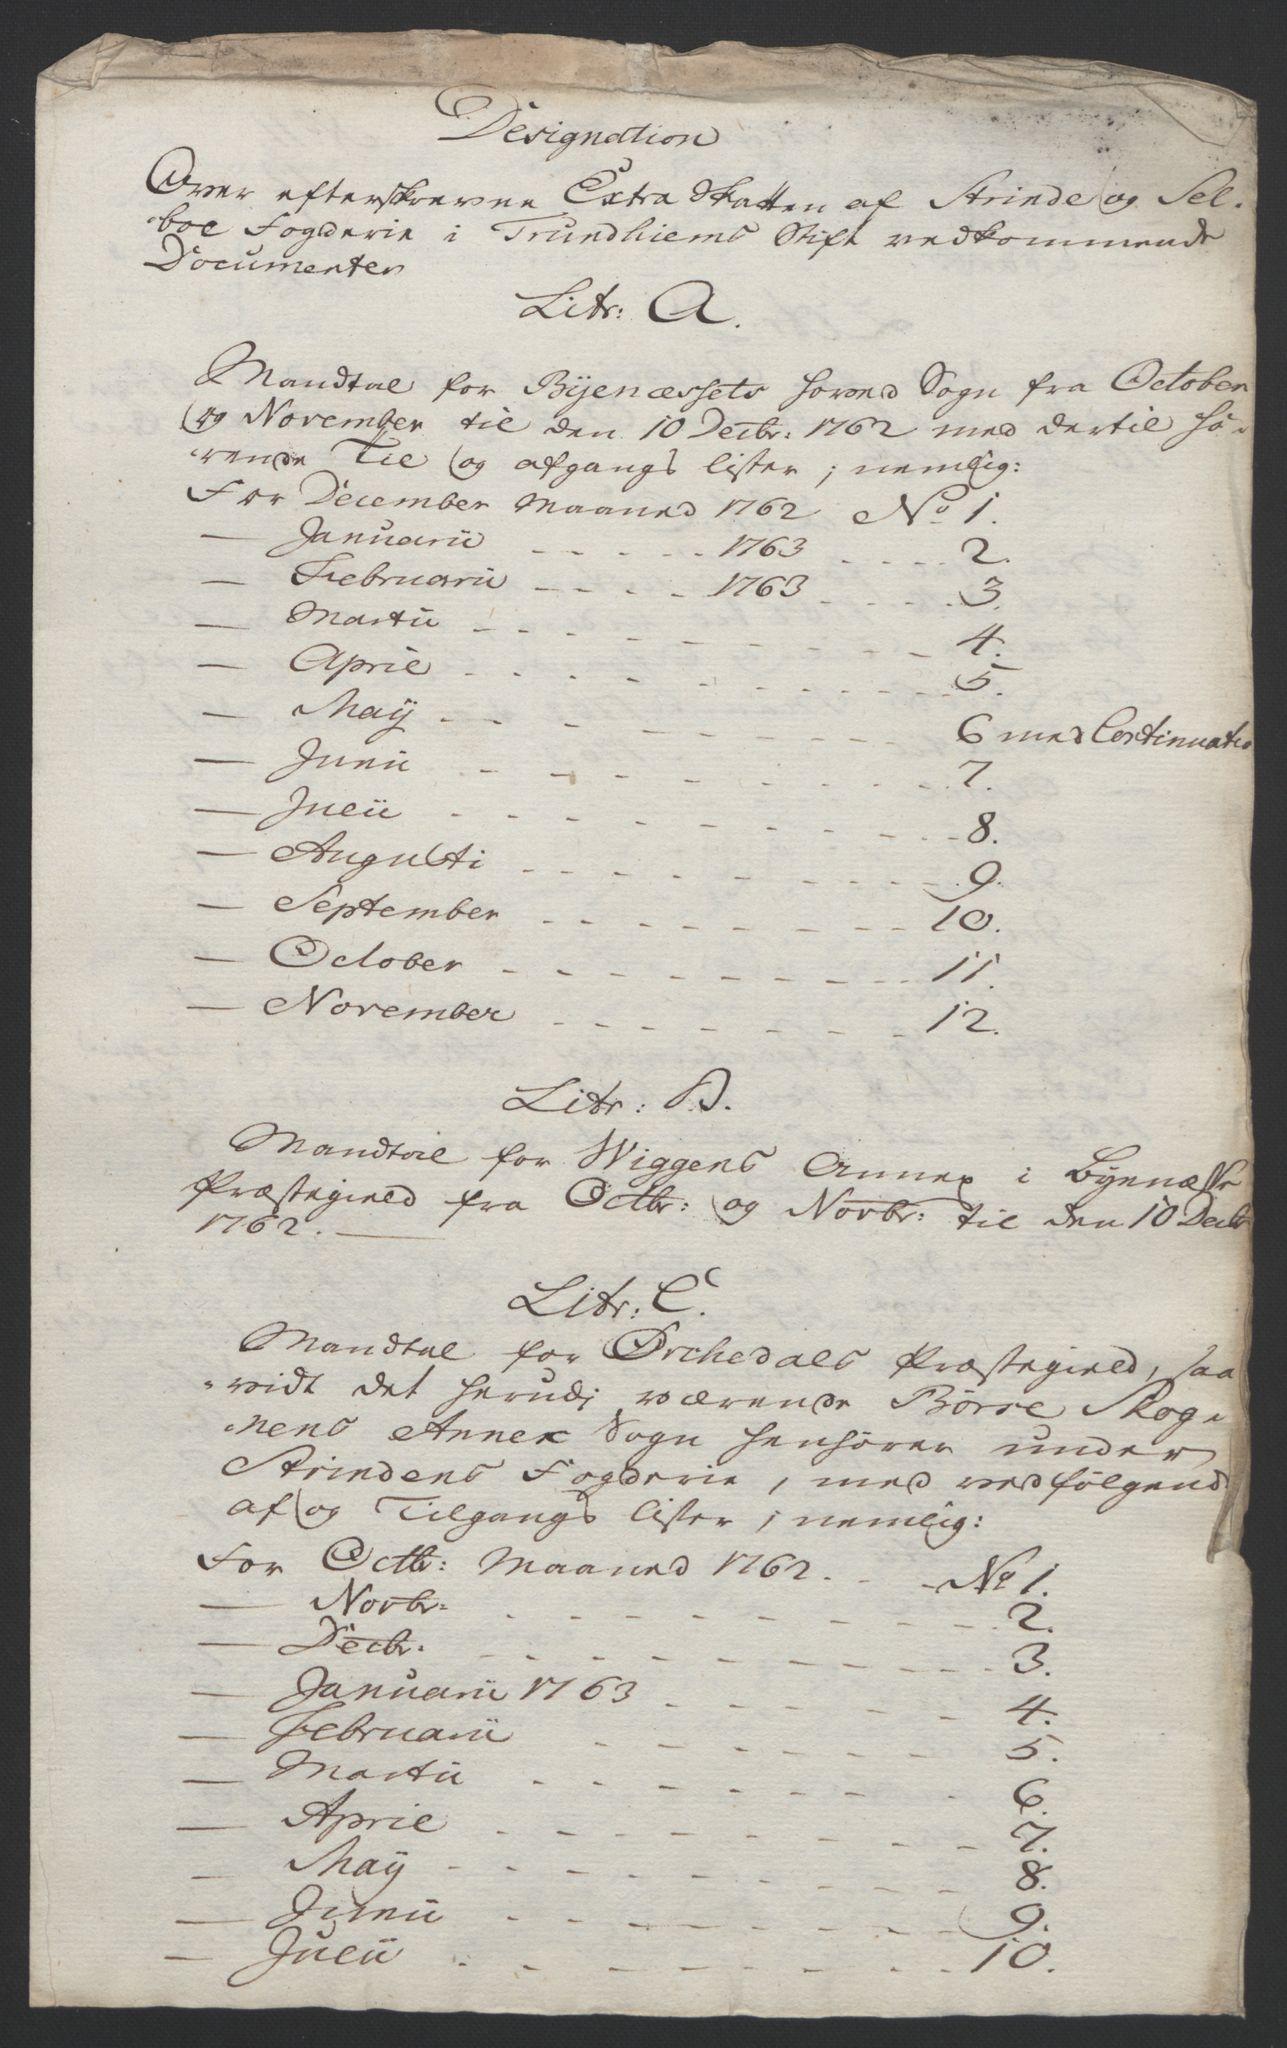 Designation
Over efterskrevne Extra Skatten af Strinde og Sel-
boe Fogderie i Trundhiems Stift vedkommende
Documenter
Litr: A.
Mandtal for Bÿenæssets hoved Sogn fra October
og November til den 10 Decbr: 1762 med dertil hø-
rende Til og afgangs lister, nemlig:
For December Maaned 1762 No 1.
— Januarii - - - - - 1763 - - - - 2.
— Februarii - - - - 1763 - - - - 3.
— Martii - - - - - - - - - 4.
— April - - - - - - - - - 5.
— Maÿ - - - - - - - - - 6 med Continuatio
— Junii - - - - - - - - - 7.
— Julii - - - - - - - - - 8.
— Augusti - - - - - - - - - 9.
— September - - - - - - - - 10.
— October - - - - - - - - - 11.
— November - - - - - - - - 12.
Litr: B.
Mandtal for Wiggens Annex i Byenæssets
Præstegield fra Octbr: og Novbr: til den 10 Decbr
1762. —
Litr: C.
Mandtal for Orchedals Præstegield, saa
vidt det herudj værende Børse Skog-
nens Annex Sogn henhører under
Strindens Fogderie, med vedfølgende
af og Tilgangs lister, nemlig:
For Octbr: Maaned 1762. - - No 1.
— Novbr: - - - - - - - - - 2.
— Decbr. - - - - - - - - - 3.
— Januarii 1763 - - - - - - 4.
— Februarii - - - - - - - 5.
— Martii - - - - - - - - 6.
— April - - - - - - - - 7.
— Maÿ - - - - - - - - - 8.
— Junii - - - - - - - - 9.
— Julii - - - - - - - - 10.